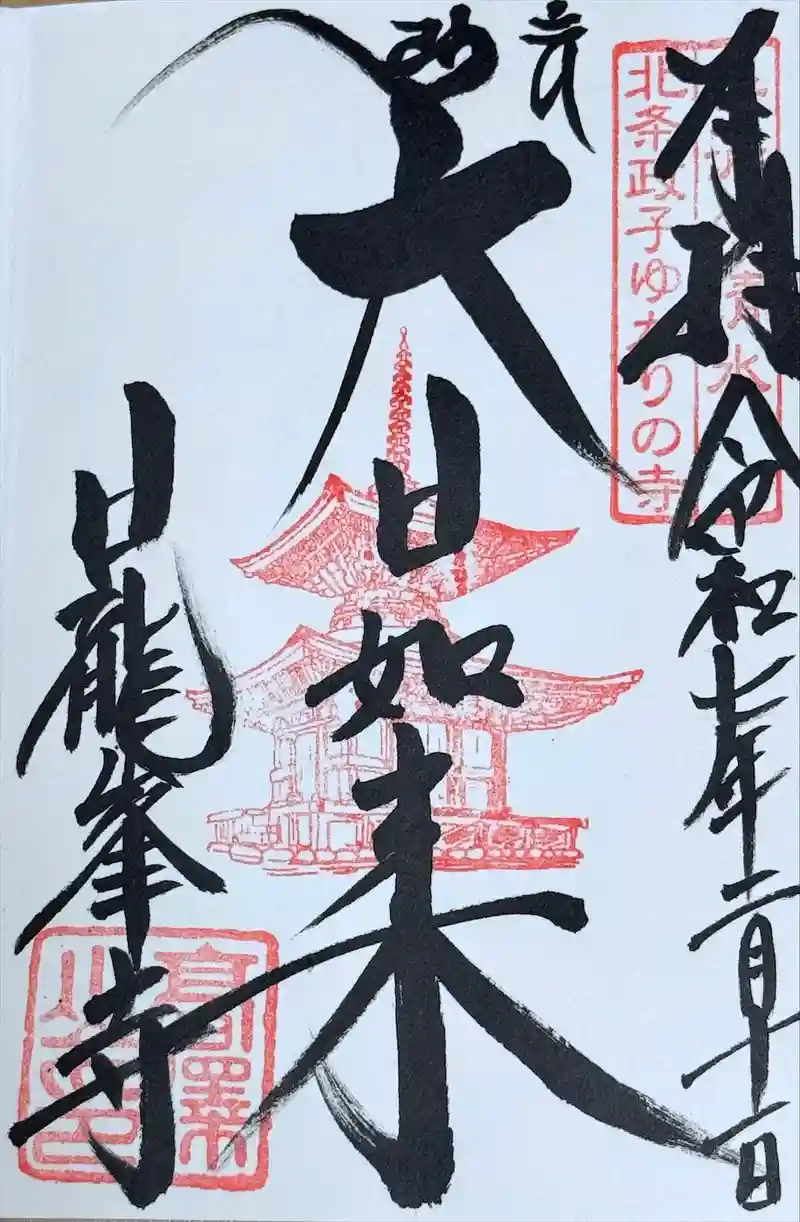 奉拝 令和七年二月十一日
北条政子ゆかりの寺
大日如来
日龍峯寺